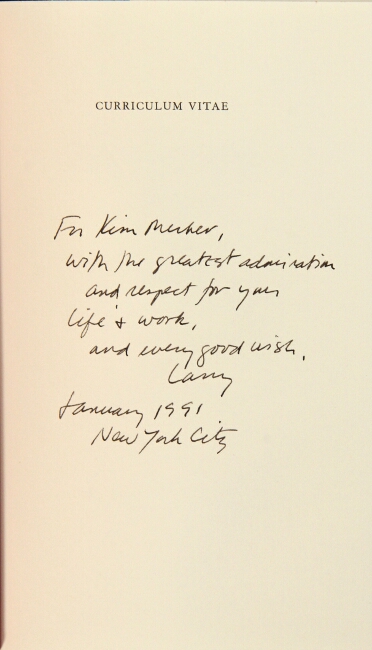 CURRICULUM VITAE
For Kim Merker,
with the greatest admiration
and respect for your
life & work,
and every good wish,
Larry
January 1991
New York City